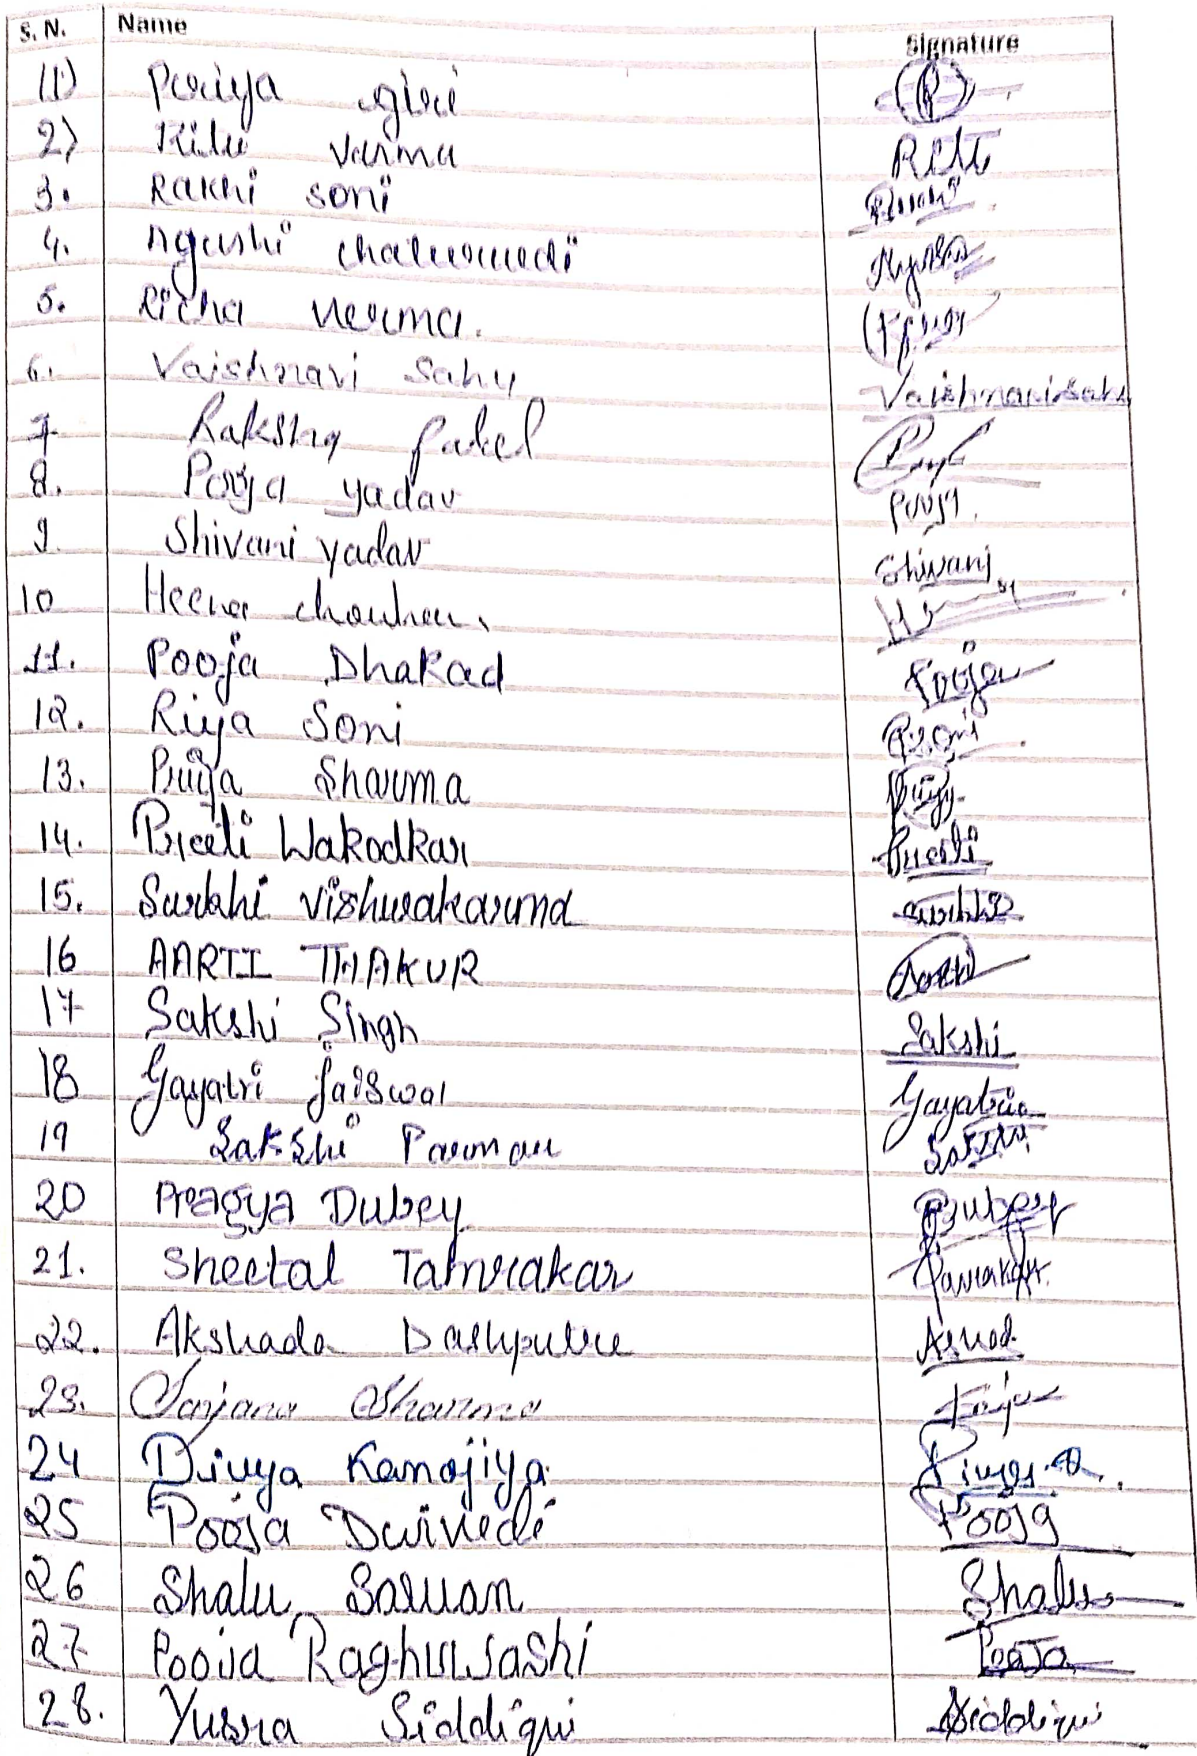 S. N. Name Signature
1) Priya giri
2) Ritu Varma Ritu
3. Rakhi soni
4. Ayushi chaturvedi Ayushi
5. Richa verma.
6. Vaishnavi Sahu Vaishnavi Sahu
7 Raksha Patel
8. Pooja yadav Pooja.
9. Shivani yadav Shivani
10 Heena chouhan.
11. Pooja Dhakad Pooja
12. Riya Soni R.soni
13. Priya Sharma Priya
14. Preeti Wakodkar Preeti
15. Surbhi vishwakarma Surbhi
16 AARTI THAKUR Aarti
17 Sakshi Singh Sakshi
18 Gayatri Jaiswal Gayatri
19 Sakshi Parmar Sakshi
20 Pragya Dubey Dubey
21. Sheetal Tamrakar Tamrakar
22. Akshada Dashputre
23. Sanjana Sharma
24 Divya Kanojiya Divya
25 Pooja Dwivedi Pooja
26 Shalu Sarwan Shalu
27 Pooja Raghuwashi Pooja
28. Yusra Siddiqui Siddiqui